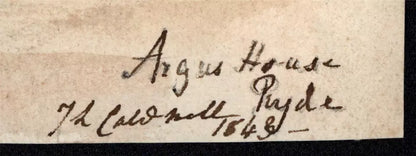 Argus House
Th Caldwell Ryde
1843